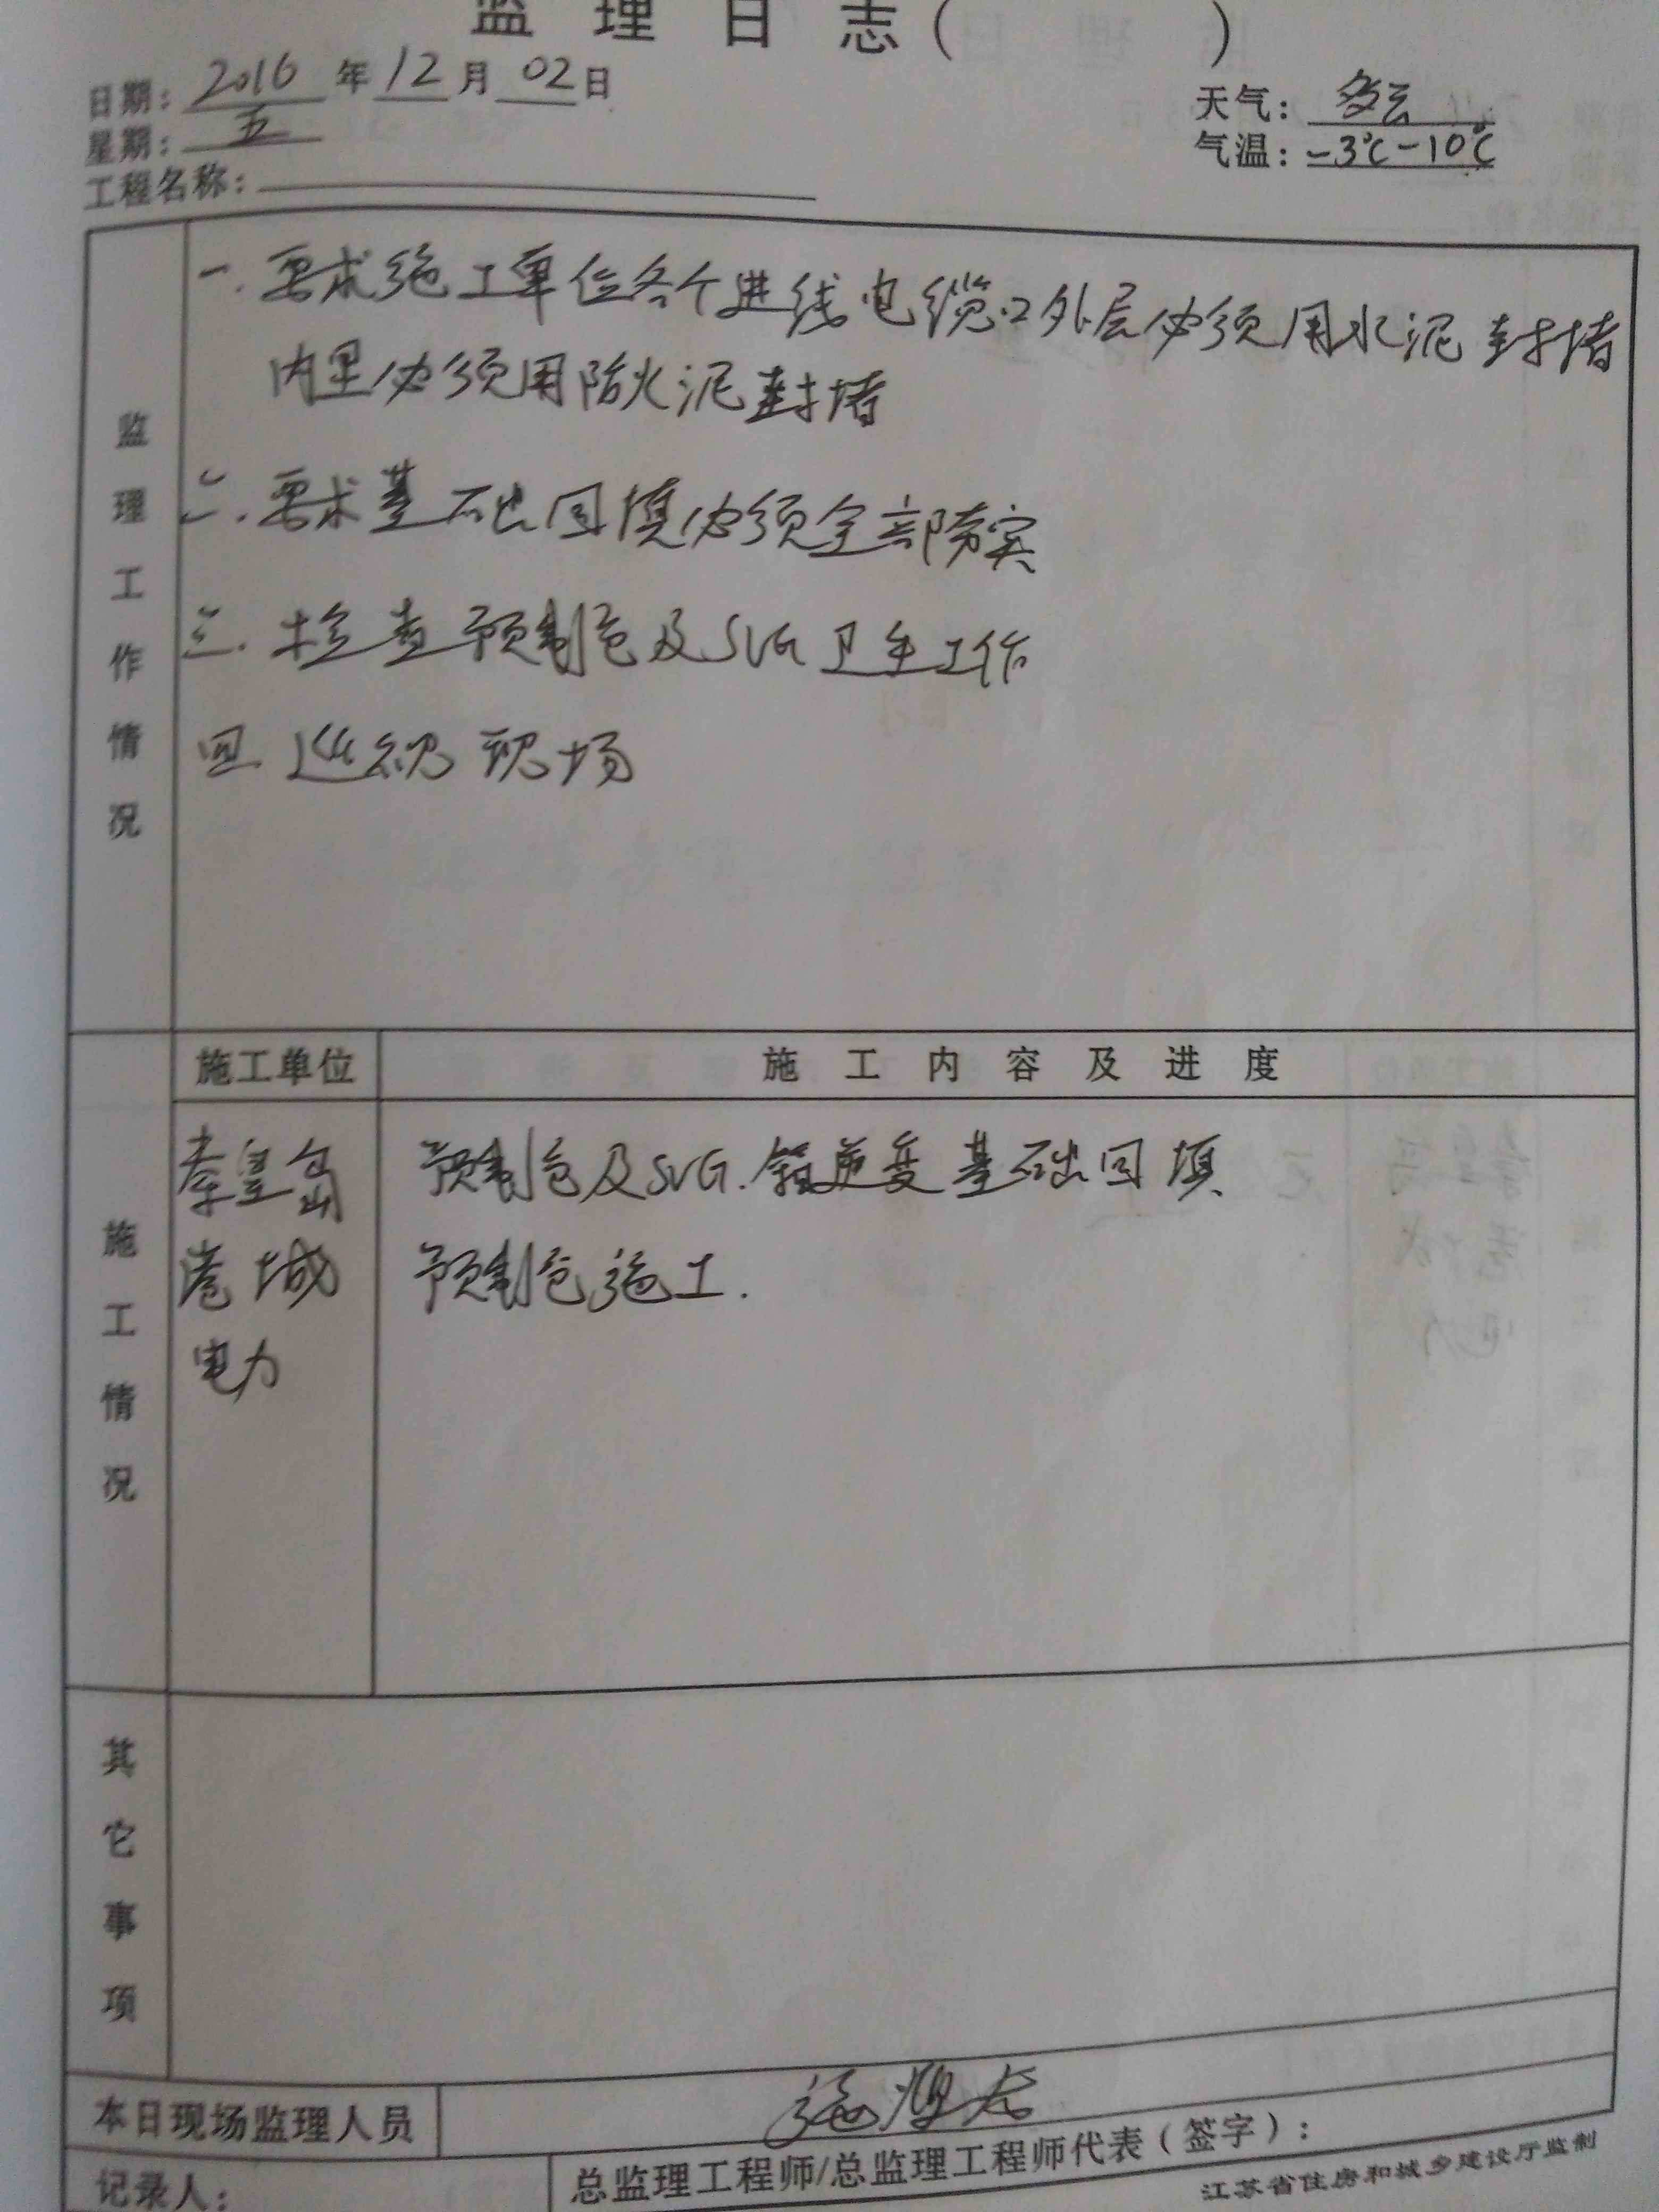 监理日志( )
日期：2016年12月02日
天气：多云
星期：五
气温：-3℃-10℃
工程名称：
监理工作情况
一.要求施工单位各个进线电缆口外层必须用水泥封堵
内里必须用防火泥封堵
二.要求基础回填必须全部夯实
三.检查预制仓及SVG卫生工作
四 巡视现场
施工情况
施工单位
施工内容及进度
秦皇岛
港城
电力
预制仓及SVG.箱逆变基础回填
预制仓施工.
其它事项
本日现场监理人员
记录人：
总监理工程师/总监理工程师代表（签字）：
江苏省住房和城乡建设厅监制